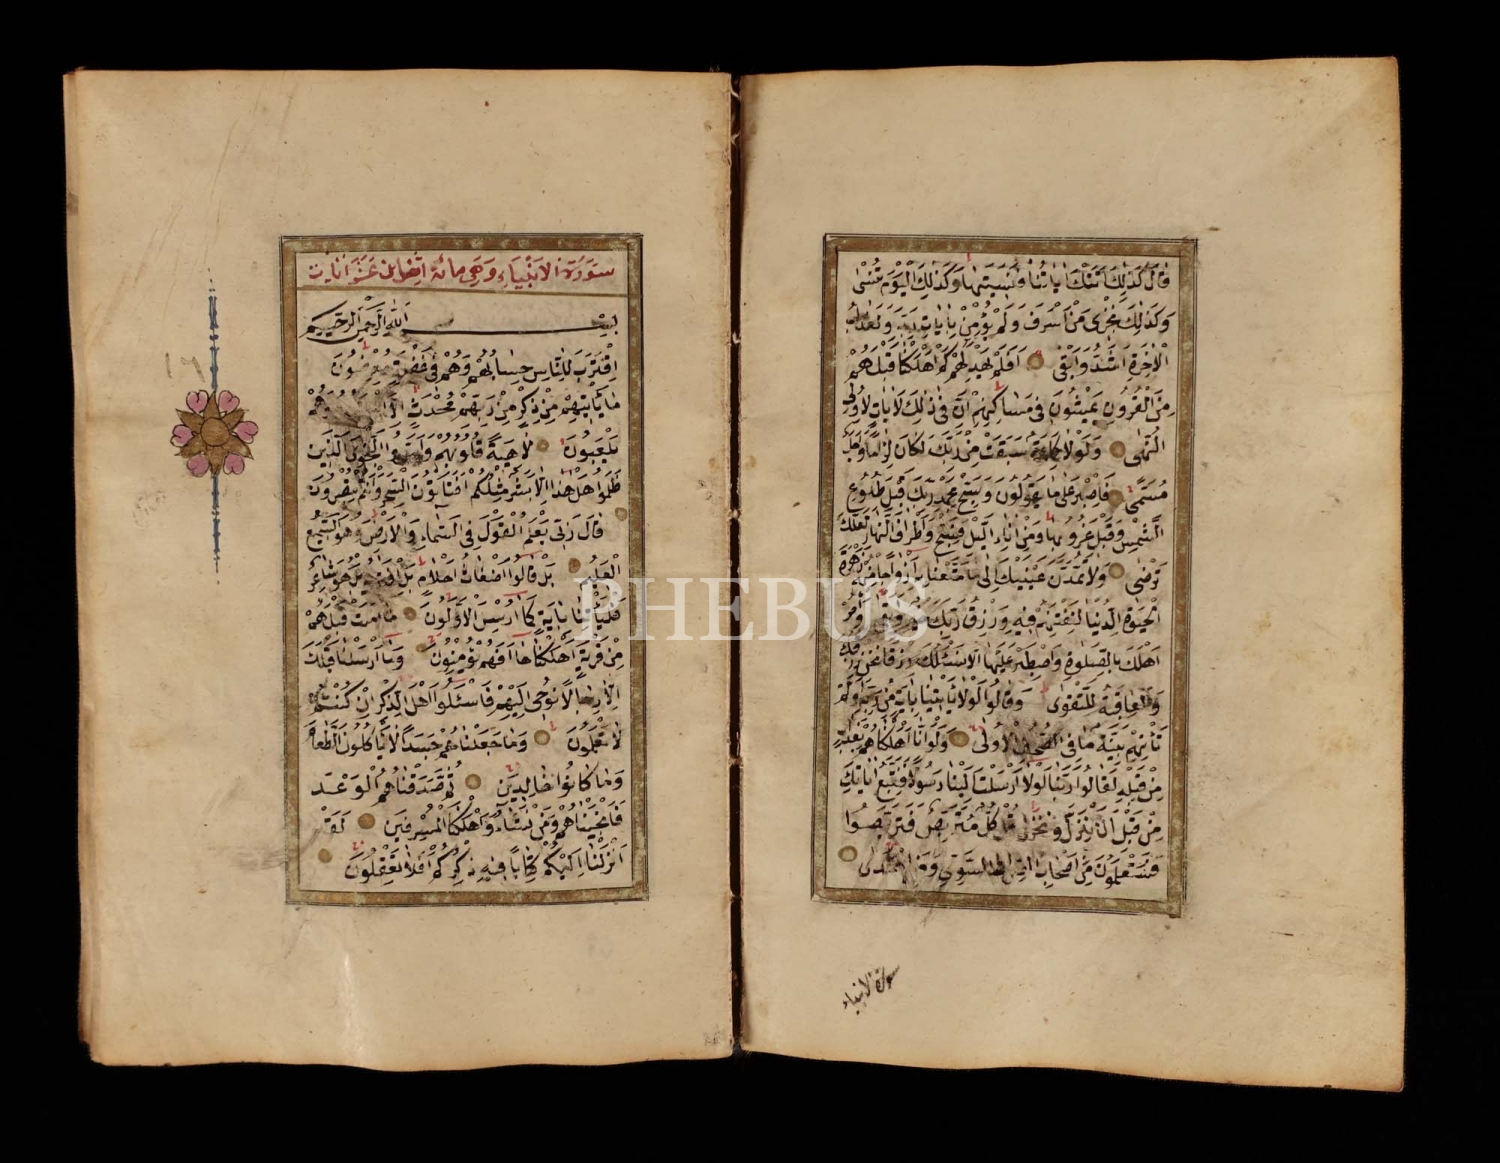 قَالَ كَذٰلِكَ اَتَتْكَ اٰيَاتُنَا فَنَسِيتَهَا وَكَذٰلِكَ الْيَوْمَ تُنْسٰى
وَكَذٰلِكَ نَجْزِى مَنْ اَسْرَفَ وَلَمْ يُؤْمِنْ بِاٰيَاتِ رَبِّهِ وَلَعَذَابُ
الْاٰخِرَةِ اَشَدُّ وَاَبْقٰى اَفَلَمْ يَهْدِ لَهُمْ كَمْ اَهْلَكْنَا قَبْلَهُمْ
مِنَ الْقُرُونِ يَمْشُونَ فِى مَسَاكِنِهِمْ اِنَّ فِى ذٰلِكَ لَاٰيَاتٍ لِاُولِى
النُّهٰى وَلَوْلَا كَلِمَةٌ سَبَقَتْ مِنْ رَبِّكَ لَكَانَ لِزَامًا وَاَجَلٌ
مُسَمًّى فَاصْبِرْ عَلٰى مَا يَقُولُونَ وَسَبِّحْ بِحَمْدِ رَبِّكَ قَبْلَ طُلُوعِ
الشَّمْسِ وَقَبْلَ غُرُوبِهَا وَمِنْ اٰنَاءِ الَّيْلِ فَسَبِّحْ وَاَطْرَافَ النَّهَارِ لَعَلَّكَ
تَرْضٰى وَلَا تَمُدَّنَّ عَيْنَيْكَ اِلٰى مَا مَتَّعْنَا بِهِ اَزْوَاجًا مِنْهُمْ زَهْرَةَ
الْحَيٰوةِ الدُّنْيَا لِنَفْتِنَهُمْ فِيهِ وَرِزْقُ رَبِّكَ خَيْرٌ وَاَبْقٰى وَأْمُرْ
اَهْلَكَ بِالصَّلٰوةِ وَاصْطَبِرْ عَلَيْهَا لَا نَسْئَلُكَ رِزْقًا نَحْنُ نَرْزُقُكَ
وَالْعَاقِبَةُ لِلتَّقْوٰى وَقَالُوا لَوْلَا يَأْتِينَا بِاٰيَةٍ مِنْ رَبِّهِ اَوَلَمْ
تَأْتِهِمْ بَيِّنَةُ مَا فِى الصُّحُفِ الْاُولٰى وَلَوْ اَنَّا اَهْلَكْنَاهُمْ بِعَذَابٍ
مِنْ قَبْلِهِ لَقَالُوا رَبَّنَا لَوْلَا اَرْسَلْتَ اِلَيْنَا رَسُولًا فَنَتَّبِعَ اٰيَاتِكَ
مِنْ قَبْلِ اَنْ نَذِلَّ وَنَخْزٰى قُلْ كُلٌّ مُتَرَبِّصٌ فَتَرَبَّصُوا
فَسَتَعْلَمُونَ مَنْ اَصْحَابُ الصِّرَاطِ السَّوِىِّ وَمَنِ اهْتَدٰى
سورة الانبياء
سُورَةُ الْاَنْبِيَاءِ وَهِىَ مِائَةٌ عَشَرَ اٰيَات
بِسْمِ اللّٰهِ الرَّحْمٰنِ الرَّحِيمِ
اِقْتَرَبَ لِلنَّاسِ حِسَابُهُمْ وَهُمْ فِى غَفْلَةٍ مُعْرِضُونَ
مَا يَأْتِيهِمْ مِنْ ذِكْرٍ مِنْ رَبِّهِمْ مُحْدَثٍ اِلَّا اسْتَمَعُوهُ وَهُمْ
يَلْعَبُونَ لَاهِيَةً قُلُوبُهُمْ وَاَسَرُّوا النَّجْوَى الَّذِينَ
ظَلَمُوا هَلْ هٰذَا اِلَّا بَشَرٌ مِثْلُكُمْ اَفَتَأْتُونَ السِّحْرَ وَاَنْتُمْ تُبْصِرُونَ
قَالَ رَبِّى يَعْلَمُ الْقَوْلَ فِى السَّمَاءِ وَالْاَرْضِ وَهُوَ السَّمِيعُ
الْعَلِيمُ بَلْ قَالُوا اَضْغَاثُ اَحْلَامٍ بَلِ افْتَرٰيهُ بَلْ هُوَ شَاعِرٌ
فَلْيَأْتِنَا بِاٰيَةٍ كَمَا اُرْسِلَ الْاَوَّلُونَ مَا اٰمَنَتْ قَبْلَهُمْ
مِنْ قَرْيَةٍ اَهْلَكْنَاهَا اَفَهُمْ يُؤْمِنُونَ وَمَا اَرْسَلْنَا قَبْلَكَ
اِلَّا رِجَالًا نُوحِى اِلَيْهِمْ فَاسْئَلُوا اَهْلَ الذِّكْرِ اِنْ كُنْتُمْ
لَا تَعْلَمُونَ وَمَا جَعَلْنَاهُمْ جَسَدًا لَا يَأْكُلُونَ الطَّعَامَ
وَمَا كَانُوا خَالِدِينَ ثُمَّ صَدَقْنَاهُمُ الْوَعْدَ
فَاَنْجَيْنَاهُمْ وَمَنْ نَشَاءُ وَاَهْلَكْنَا الْمُسْرِفِينَ لَقَدْ
اَنْزَلْنَا اِلَيْكُمْ كِتَابًا فِيهِ ذِكْرُكُمْ اَفَلَا تَعْقِلُونَ
PHEBUS